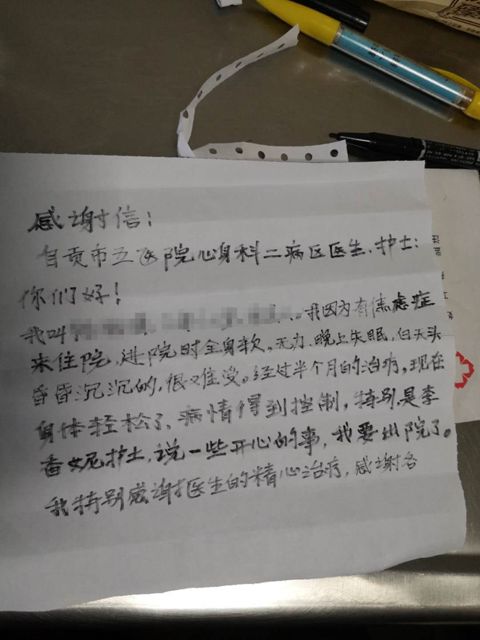 感谢信:
自贡市五医院心身科二病区医生、护士:
你们好!
我叫 。我因为有焦虑症
来住院,进院时全身软,无力,晚上失眠,白天头
昏昏沉沉的,很难受。经过半个月的治疗,现在
身体轻松了,病情得到控制,特别是李
香妮护士,说一些开心的事,我要出院了。
我特别感谢医生的精心治疗,感谢各